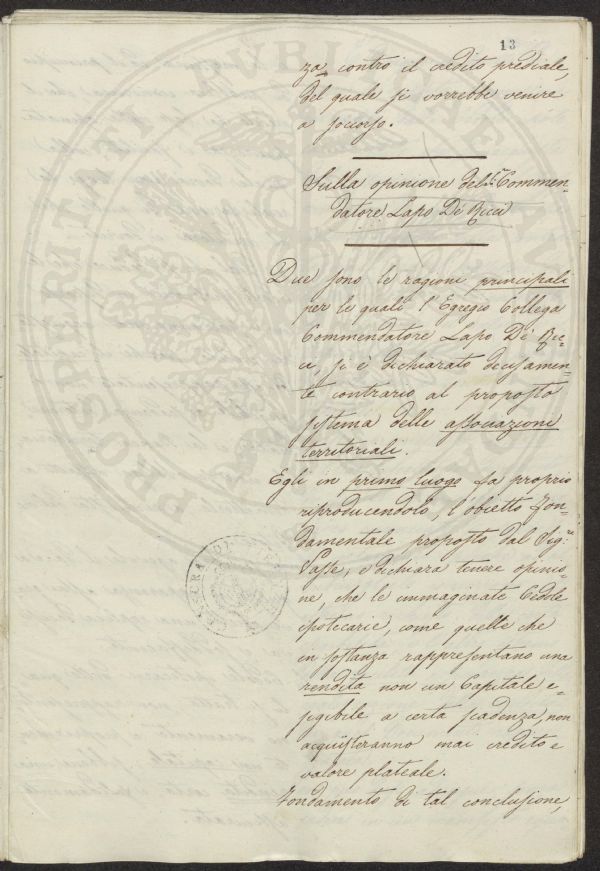 13
za contro il credito prediale,
del quale si vorrebbe venire
a soccorso.
Sulla opinione del Sr. Commen-
datore Lapo De' Ricci
Due sono le ragioni principali
per le quali l'Egregio Collega
Commendatore Lapo De' Ric-
ci, si è dichiarato decisamen-
te contrario al proposto
sistema delle associazioni
territoriali.
Egli in primo luogo fa proprio
riproducendolo, l'obietto fon-
damentale proposto dal Sigre.
, e dichiara tenere opinio-
ne, che le immaginate Cedole
ipotecarie, come quelle che
in sostanza rappresentano una
rendita non un Capitale e-
sigibile a certa scadenza, non
acquisteranno mai credito e
valore plateale.
Fondamento di tal conclusione,
PROSPERITATI PUBLICAE